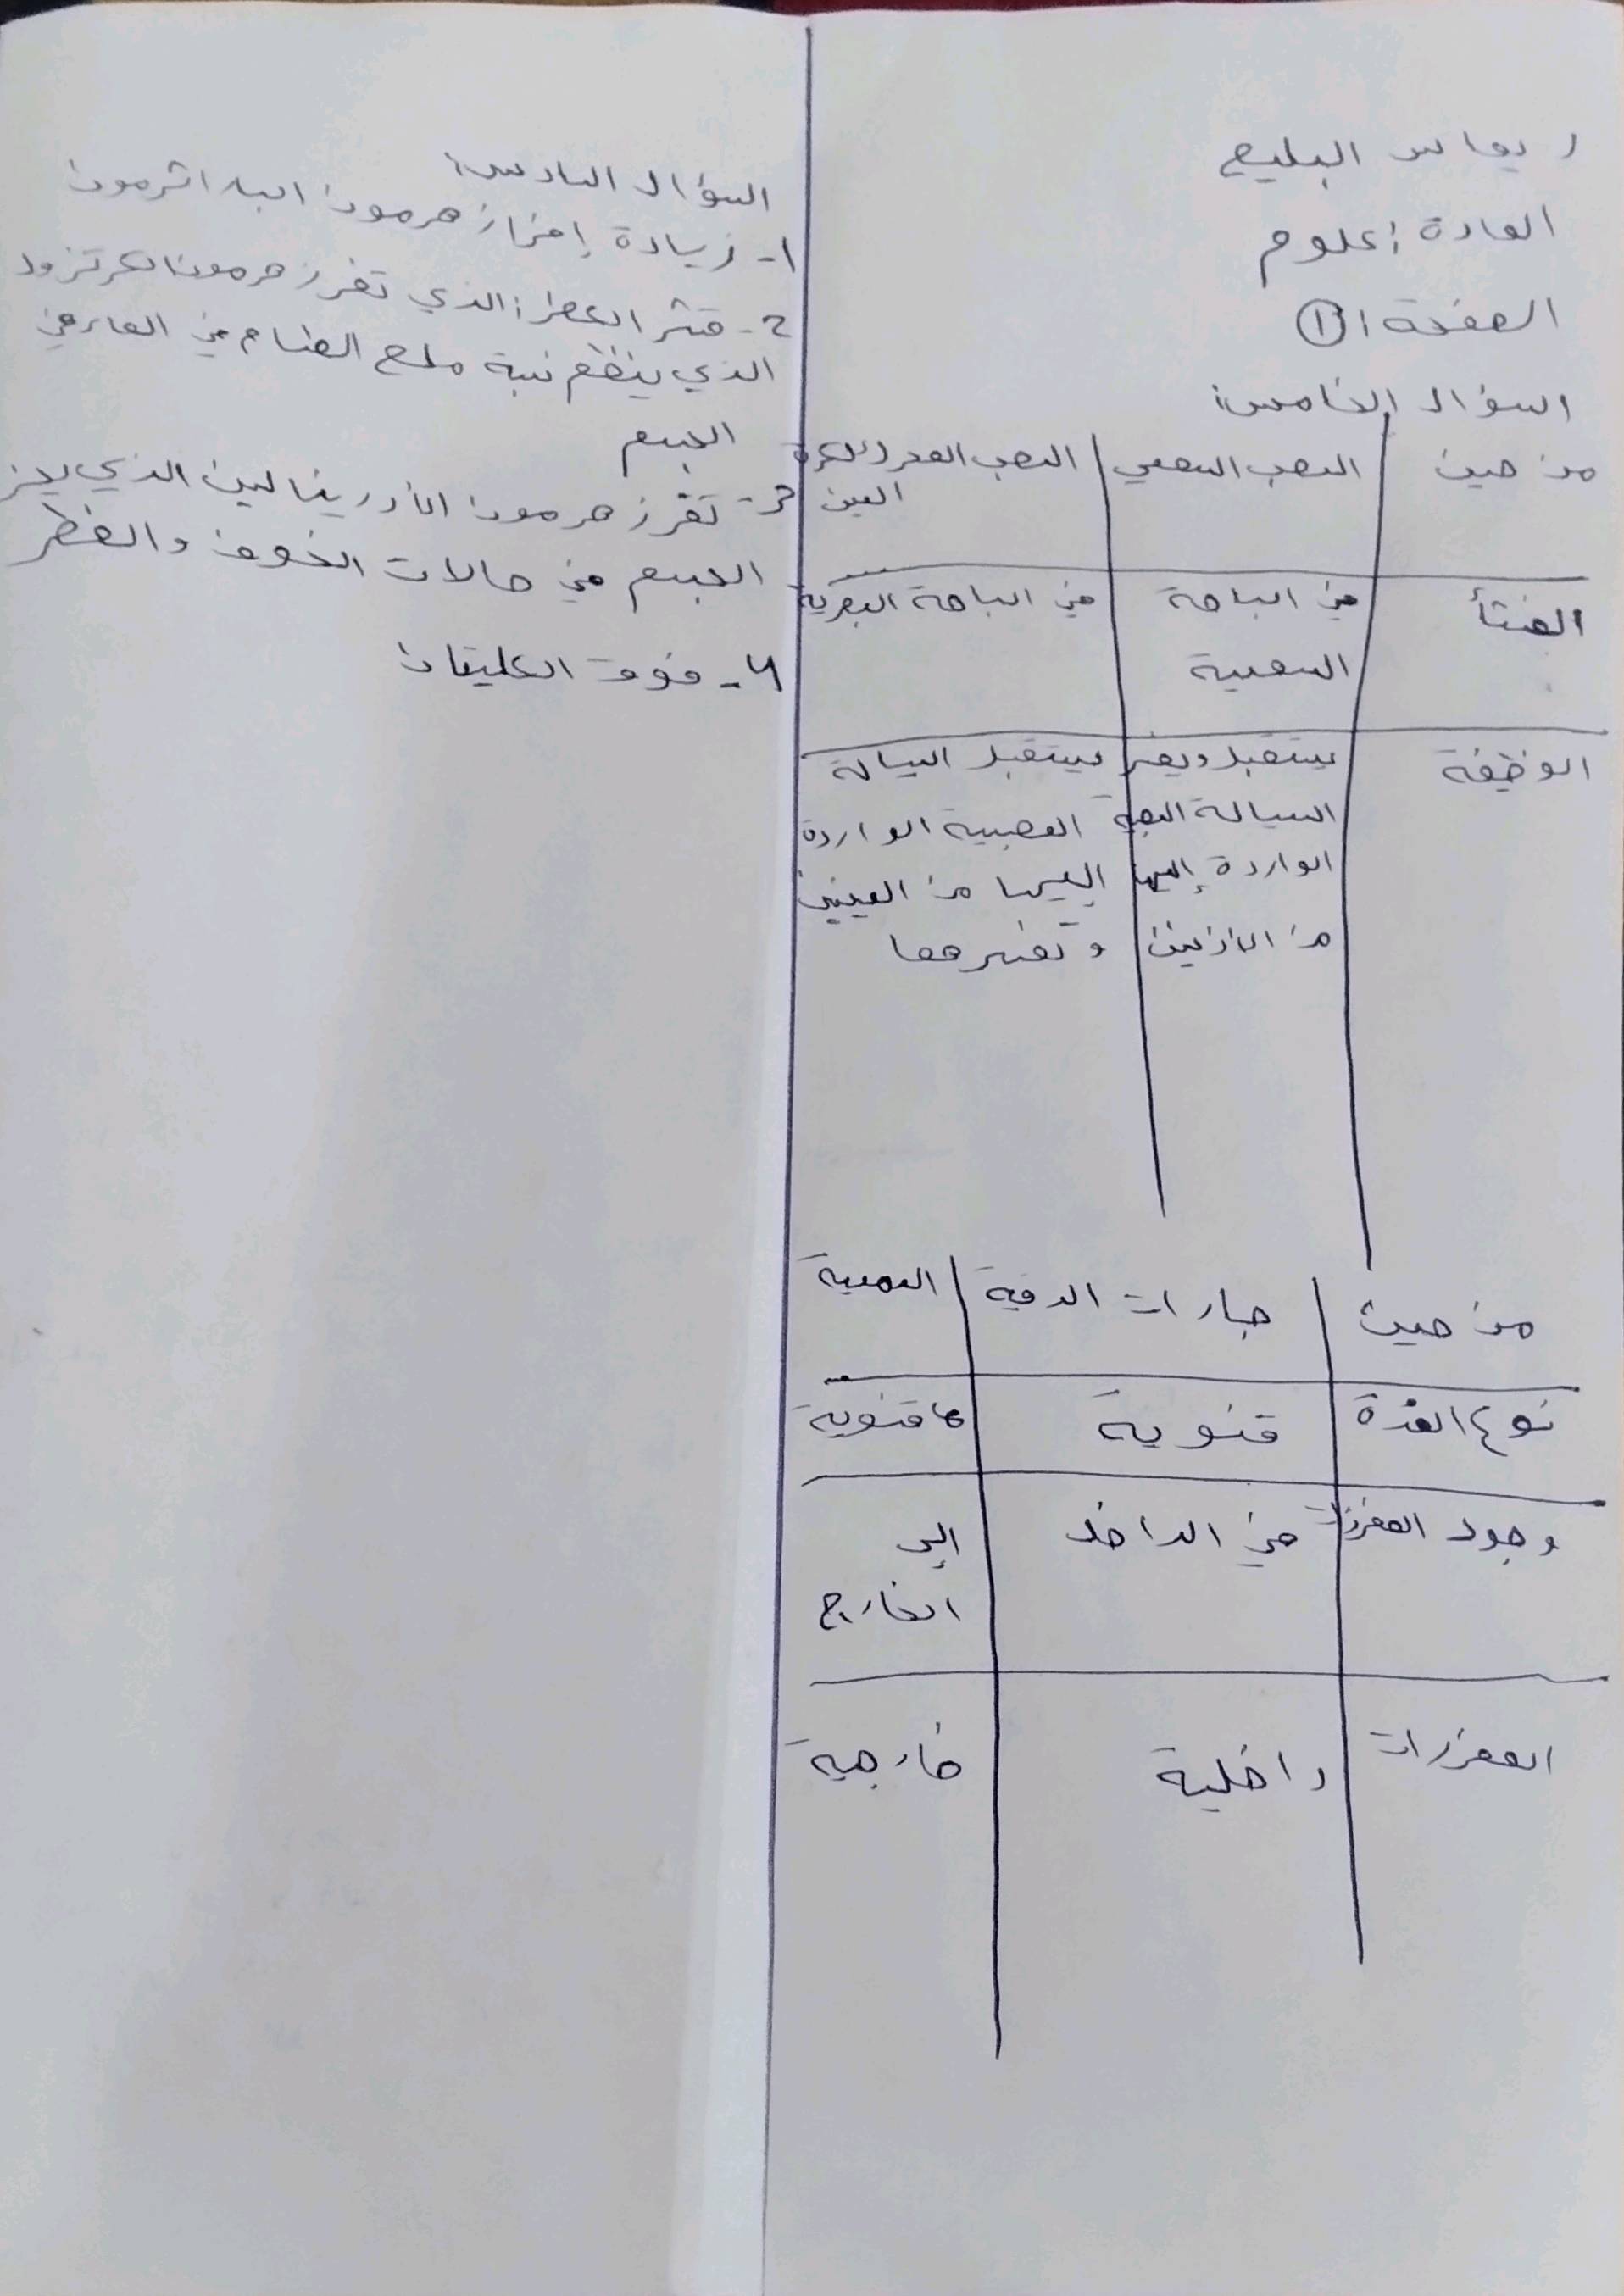 ريماس البليع
المادة: علوم
الصفحة: ①
السؤال الخامس:
من حيث | العصب السمعي | العصب المحرك لكرة العين
المنشأ | في الباحة السمعية | في الباحة البصرية
الوظيفة | يستقبل ويفسر السيالة العصبية الواردة إليها من الأذنين | يستقبل السيالة العصبية الواردة إليها من العينين وتفسرهما
من حيث | جارات الدرقية | العرقية
نوع الغدة | قنوية | لا قنوية
وجود المفرزات | في الداخل | إلى الخارج
المفرزات | داخلية | خارجية
السؤال السادس:
1- زيادة إفراز هرمون الباراثرمون
2- قشر الكظر: الذي تفرز هرمون الكورتزول
الذي ينظم نسبة ملح الطعام في الماء في
الجسم
3- تفرز هرمون الأدرينالين الذي يحفز
الجسم في حالات الخوف والخطر
4- فوق الكليتان